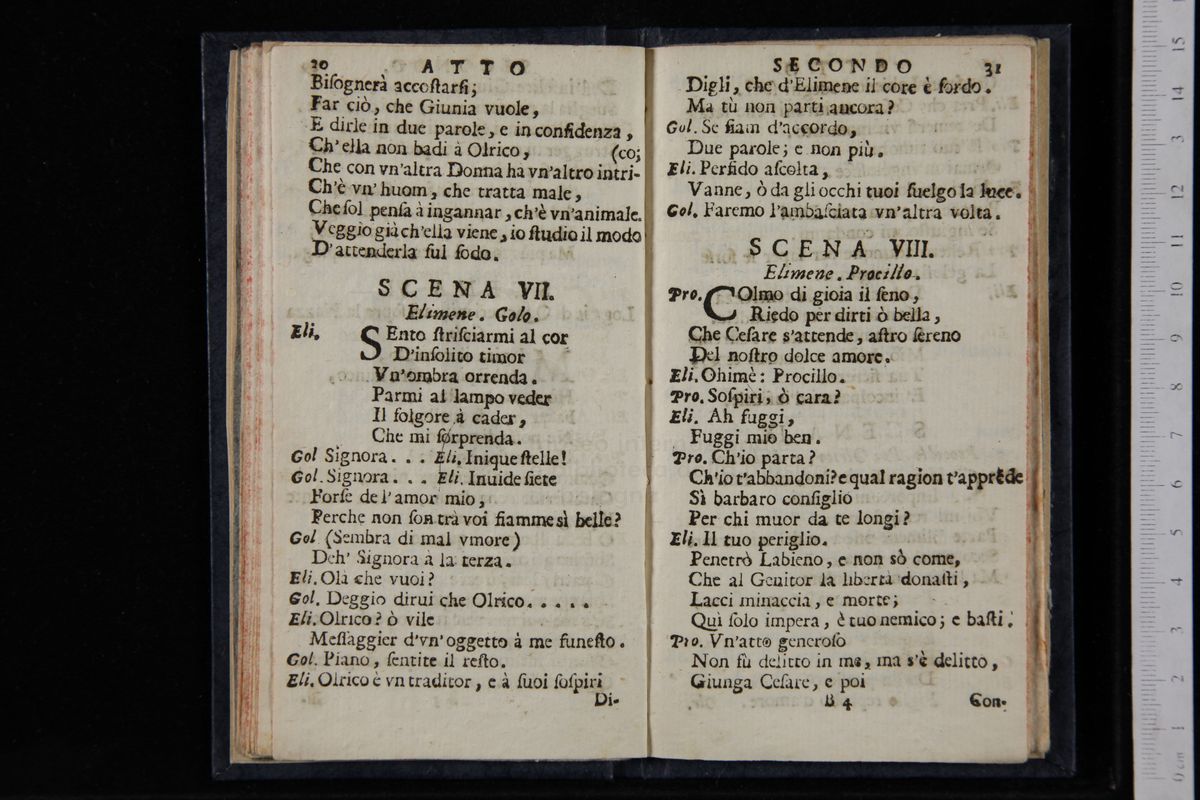 20 ATTO
Biſognerà accoſtarſi;
Far ciò, che Giunia vuole,
E dirle in due parole, e in confidenza,
Ch'ella non badi à Olrico, (co;
Che con vn'altra Donna ha vn'altro intri-
Ch'è vn' huom, che tratta male,
Che ſol penſa à ingannar, ch'è vn'animale.
Veggio già ch'ella viene, io ſtudio il modo
D'attenderla ſul ſodo.
SCENA VII.
Elimene. Golo.
Eli. SEnto ſtriſciarmi al cor
D'inſolito timor
Vn'ombra orrenda.
Parmi al lampo veder
Il folgore à cader,
Che mi ſorprenda.
Gol Signora. . . Eli. Inique ſtelle!
Gol. Signora. . . Eli. Inuide ſiete
Forſe del'amor mio,
Perche non ſon trà voi fiamme sì belle?
Gol (Sembra di mal vmore)
Deh' Signora à la terza.
Eli. Olà che vuoi?
Gol. Deggio dirui che Olrico. . . . .
Eli. Olrico? ò vile
Meſſaggier d'vn'oggetto à me funeſto.
Gol. Piano, ſentite il reſto.
Eli. Olrico è vn traditor, e à ſuoi ſoſpiri
Di-
SECONDO 31
Digli, che d'Elimene il core è ſordo.
Ma tù non parti ancora?
Gol. Se ſiam d'accordo,
Due parole; e non più.
Eli. Perfido aſcolta,
Vanne, ò da gli occhi tuoi ſuelgo la luce.
Gol. Faremo l'ambaſciata vn'altra volta.
SCENA VIII.
Elimene. Procillo.
Pro. COlmo di gioia il ſeno,
Riedo per dirti ò bella,
Che Ceſare s'attende, aſtro ſereno
Del noſtro dolce amore.
Eli. Ohimè: Procillo.
Pro. Soſpiri, ò cara?
Eli. Ah fuggi,
Fuggi mio ben.
Pro. Ch'io parta?
Ch'io t'abbandoni? e qual ragion t'apprẽde
Sì barbaro conſiglio
Per chi muor da te longi?
Eli. Il tuo periglio.
Penetrò Labieno, e non sò come,
Che al Genitor la libertà donaſti,
Lacci minaccia, e morte;
Quì ſolo impera, è tuo nemico; e baſti.
Pro. Vn'atto generoſo
Non fù delitto in me, ma s'è delitto,
Giunga Ceſare, e poi
B 4 Con-